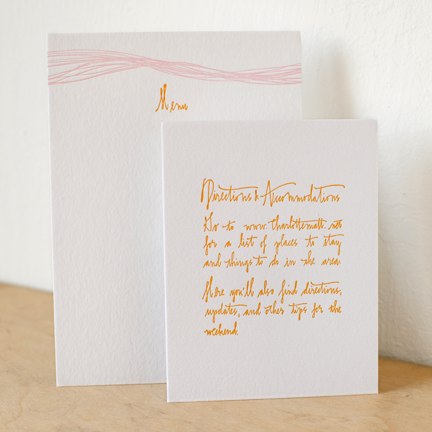 Menu
Directions & Accommodations
Go to www.charlottematt.net
for a list of places to stay
and things to do in the area
Here you'll also find directions,
updates, and other tips for the
weekend.